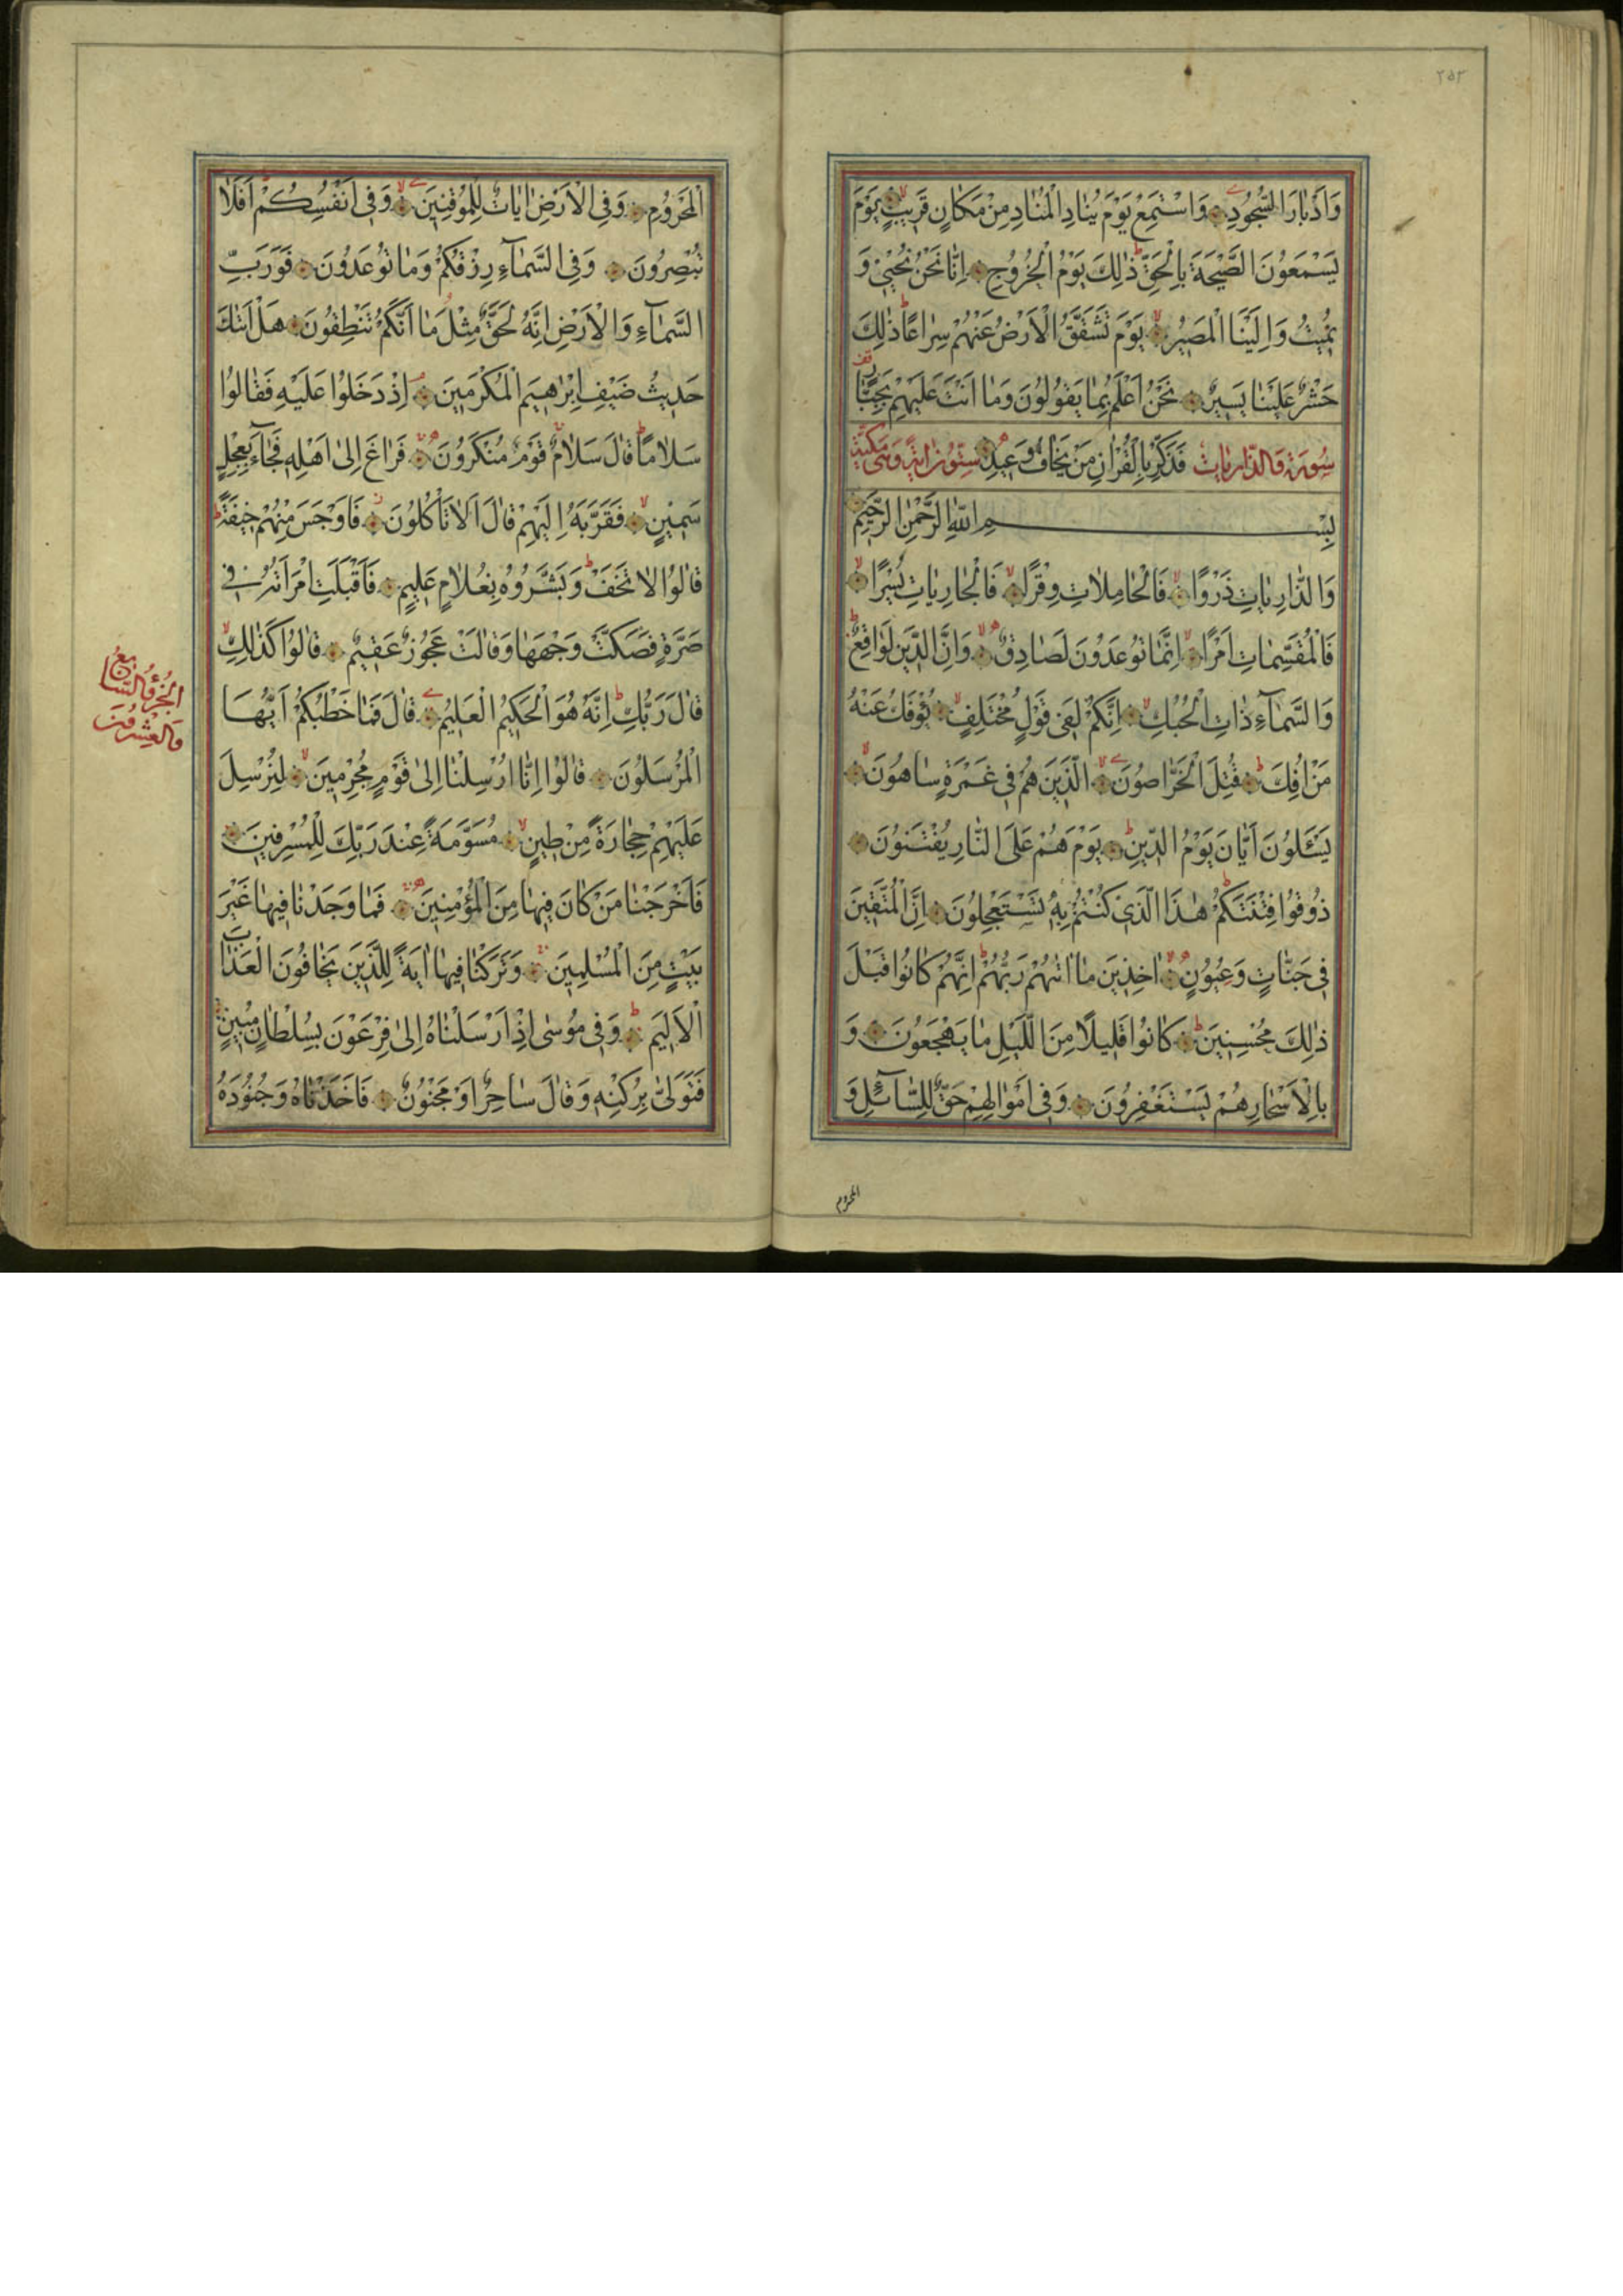 ٢٥٢
وَاَدْبَارَ السُّجُودِ وَاسْتَمِعْ يَوْمَ يُنَادِ الْمُنَادِ مِنْ مَكَانٍ قَرِيبٍ يَوْمَ
يَسْمَعُونَ الصَّيْحَةَ بِالْحَقِّ ذٰلِكَ يَوْمُ الْخُرُوجِ اِنَّا نَحْنُ نُحْيِي وَ
نُمِيتُ وَاِلَيْنَا الْمَصِيرُ يَوْمَ تَشَقَّقُ الْاَرْضُ عَنْهُمْ سِرَاعًا ذٰلِكَ
حَشْرٌ عَلَيْنَا يَسِيرٌ نَحْنُ اَعْلَمُ بِمَا يَقُولُونَ وَمَا اَنْتَ عَلَيْهِمْ بِجَبَّارٍ
فَذَكِّرْ بِالْقُرْاٰنِ مَنْ يَخَافُ وَعِيدِ
سُورَة وَالذَّارِيَات سِتُّونَ اٰيَة وَهِيَ مَكِّيَّة
بِسْــــــــمِ اللّٰهِ الرَّحْمٰنِ الرَّحِيمِ
وَالذَّارِيَاتِ ذَرْوًا فَالْحَامِلَاتِ وِقْرًا فَالْجَارِيَاتِ يُسْرًا
فَالْمُقَسِّمَاتِ اَمْرًا اِنَّمَا تُوعَدُونَ لَصَادِقٌ وَاِنَّ الدِّينَ لَوَاقِعٌ
وَالسَّمَآءِ ذَاتِ الْحُبُكِ اِنَّكُمْ لَفِي قَوْلٍ مُخْتَلِفٍ يُؤْفَكُ عَنْهُ
مَنْ اُفِكَ قُتِلَ الْخَرَّاصُونَ الَّذِينَ هُمْ فِي غَمْرَةٍ سَاهُونَ
يَسْئَلُونَ اَيَّانَ يَوْمُ الدِّينِ يَوْمَ هُمْ عَلَى النَّارِ يُفْتَنُونَ
ذُوقُوا فِتْنَتَكُمْ هٰذَا الَّذِي كُنْتُمْ بِهِ تَسْتَعْجِلُونَ اِنَّ الْمُتَّقِينَ
فِي جَنَّاتٍ وَعُيُونٍ اٰخِذِينَ مَا اٰتٰيهُمْ رَبُّهُمْ اِنَّهُمْ كَانُوا قَبْلَ
ذٰلِكَ مُحْسِنِينَ كَانُوا قَلِيلًا مِنَ اللَّيْلِ مَا يَهْجَعُونَ وَ
بِالْاَسْحَارِ هُمْ يَسْتَغْفِرُونَ وَفِي اَمْوَالِهِمْ حَقٌّ لِلسَّآئِلِ وَ
المحروم
الْمَحْرُومِ وَفِي الْاَرْضِ اٰيَاتٌ لِلْمُوقِنِينَ وَفِي اَنْفُسِكُمْ اَفَلَا
تُبْصِرُونَ وَفِي السَّمَآءِ رِزْقُكُمْ وَمَا تُوعَدُونَ فَوَرَبِّ
السَّمَآءِ وَالْاَرْضِ اِنَّهُ لَحَقٌّ مِثْلَ مَا اَنَّكُمْ تَنْطِقُونَ هَلْ اَتٰيكَ
حَدِيثُ ضَيْفِ اِبْرٰهِيمَ الْمُكْرَمِينَ اِذْ دَخَلُوا عَلَيْهِ فَقَالُوا
سَلَامًا قَالَ سَلَامٌ قَوْمٌ مُنْكَرُونَ فَرَاغَ اِلٰى اَهْلِهِ فَجَآءَ بِعِجْلٍ
سَمِينٍ فَقَرَّبَهُ اِلَيْهِمْ قَالَ اَلَا تَاْكُلُونَ فَاَوْجَسَ مِنْهُمْ خِيفَةً
قَالُوا لَا تَخَفْ وَبَشَّرُوهُ بِغُلَامٍ عَلِيمٍ فَاَقْبَلَتِ امْرَاَتُهُ فِي
صَرَّةٍ فَصَكَّتْ وَجْهَهَا وَقَالَتْ عَجُوزٌ عَقِيمٌ قَالُوا كَذٰلِكِ
قَالَ رَبُّكِ اِنَّهُ هُوَ الْحَكِيمُ الْعَلِيمُ قَالَ فَمَا خَطْبُكُمْ اَيُّهَا
الْمُرْسَلُونَ قَالُوا اِنَّا اُرْسِلْنَا اِلٰى قَوْمٍ مُجْرِمِينَ لِنُرْسِلَ
عَلَيْهِمْ حِجَارَةً مِنْ طِينٍ مُسَوَّمَةً عِنْدَ رَبِّكَ لِلْمُسْرِفِينَ
فَاَخْرَجْنَا مَنْ كَانَ فِيهَا مِنَ الْمُؤْمِنِينَ فَمَا وَجَدْنَا فِيهَا غَيْرَ
بَيْتٍ مِنَ الْمُسْلِمِينَ وَتَرَكْنَا فِيهَا اٰيَةً لِلَّذِينَ يَخَافُونَ الْعَذَابَ
الْاَلِيمَ وَفِي مُوسٰى اِذْ اَرْسَلْنَاهُ اِلٰى فِرْعَوْنَ بِسُلْطَانٍ مُبِينٍ
فَتَوَلّٰى بِرُكْنِهِ وَقَالَ سَاحِرٌ اَوْ مَجْنُونٌ فَاَخَذْنَاهُ وَجُنُودَهُ
الجُزْؤُ السَّابِعُ
وَالعِشْرُونَ